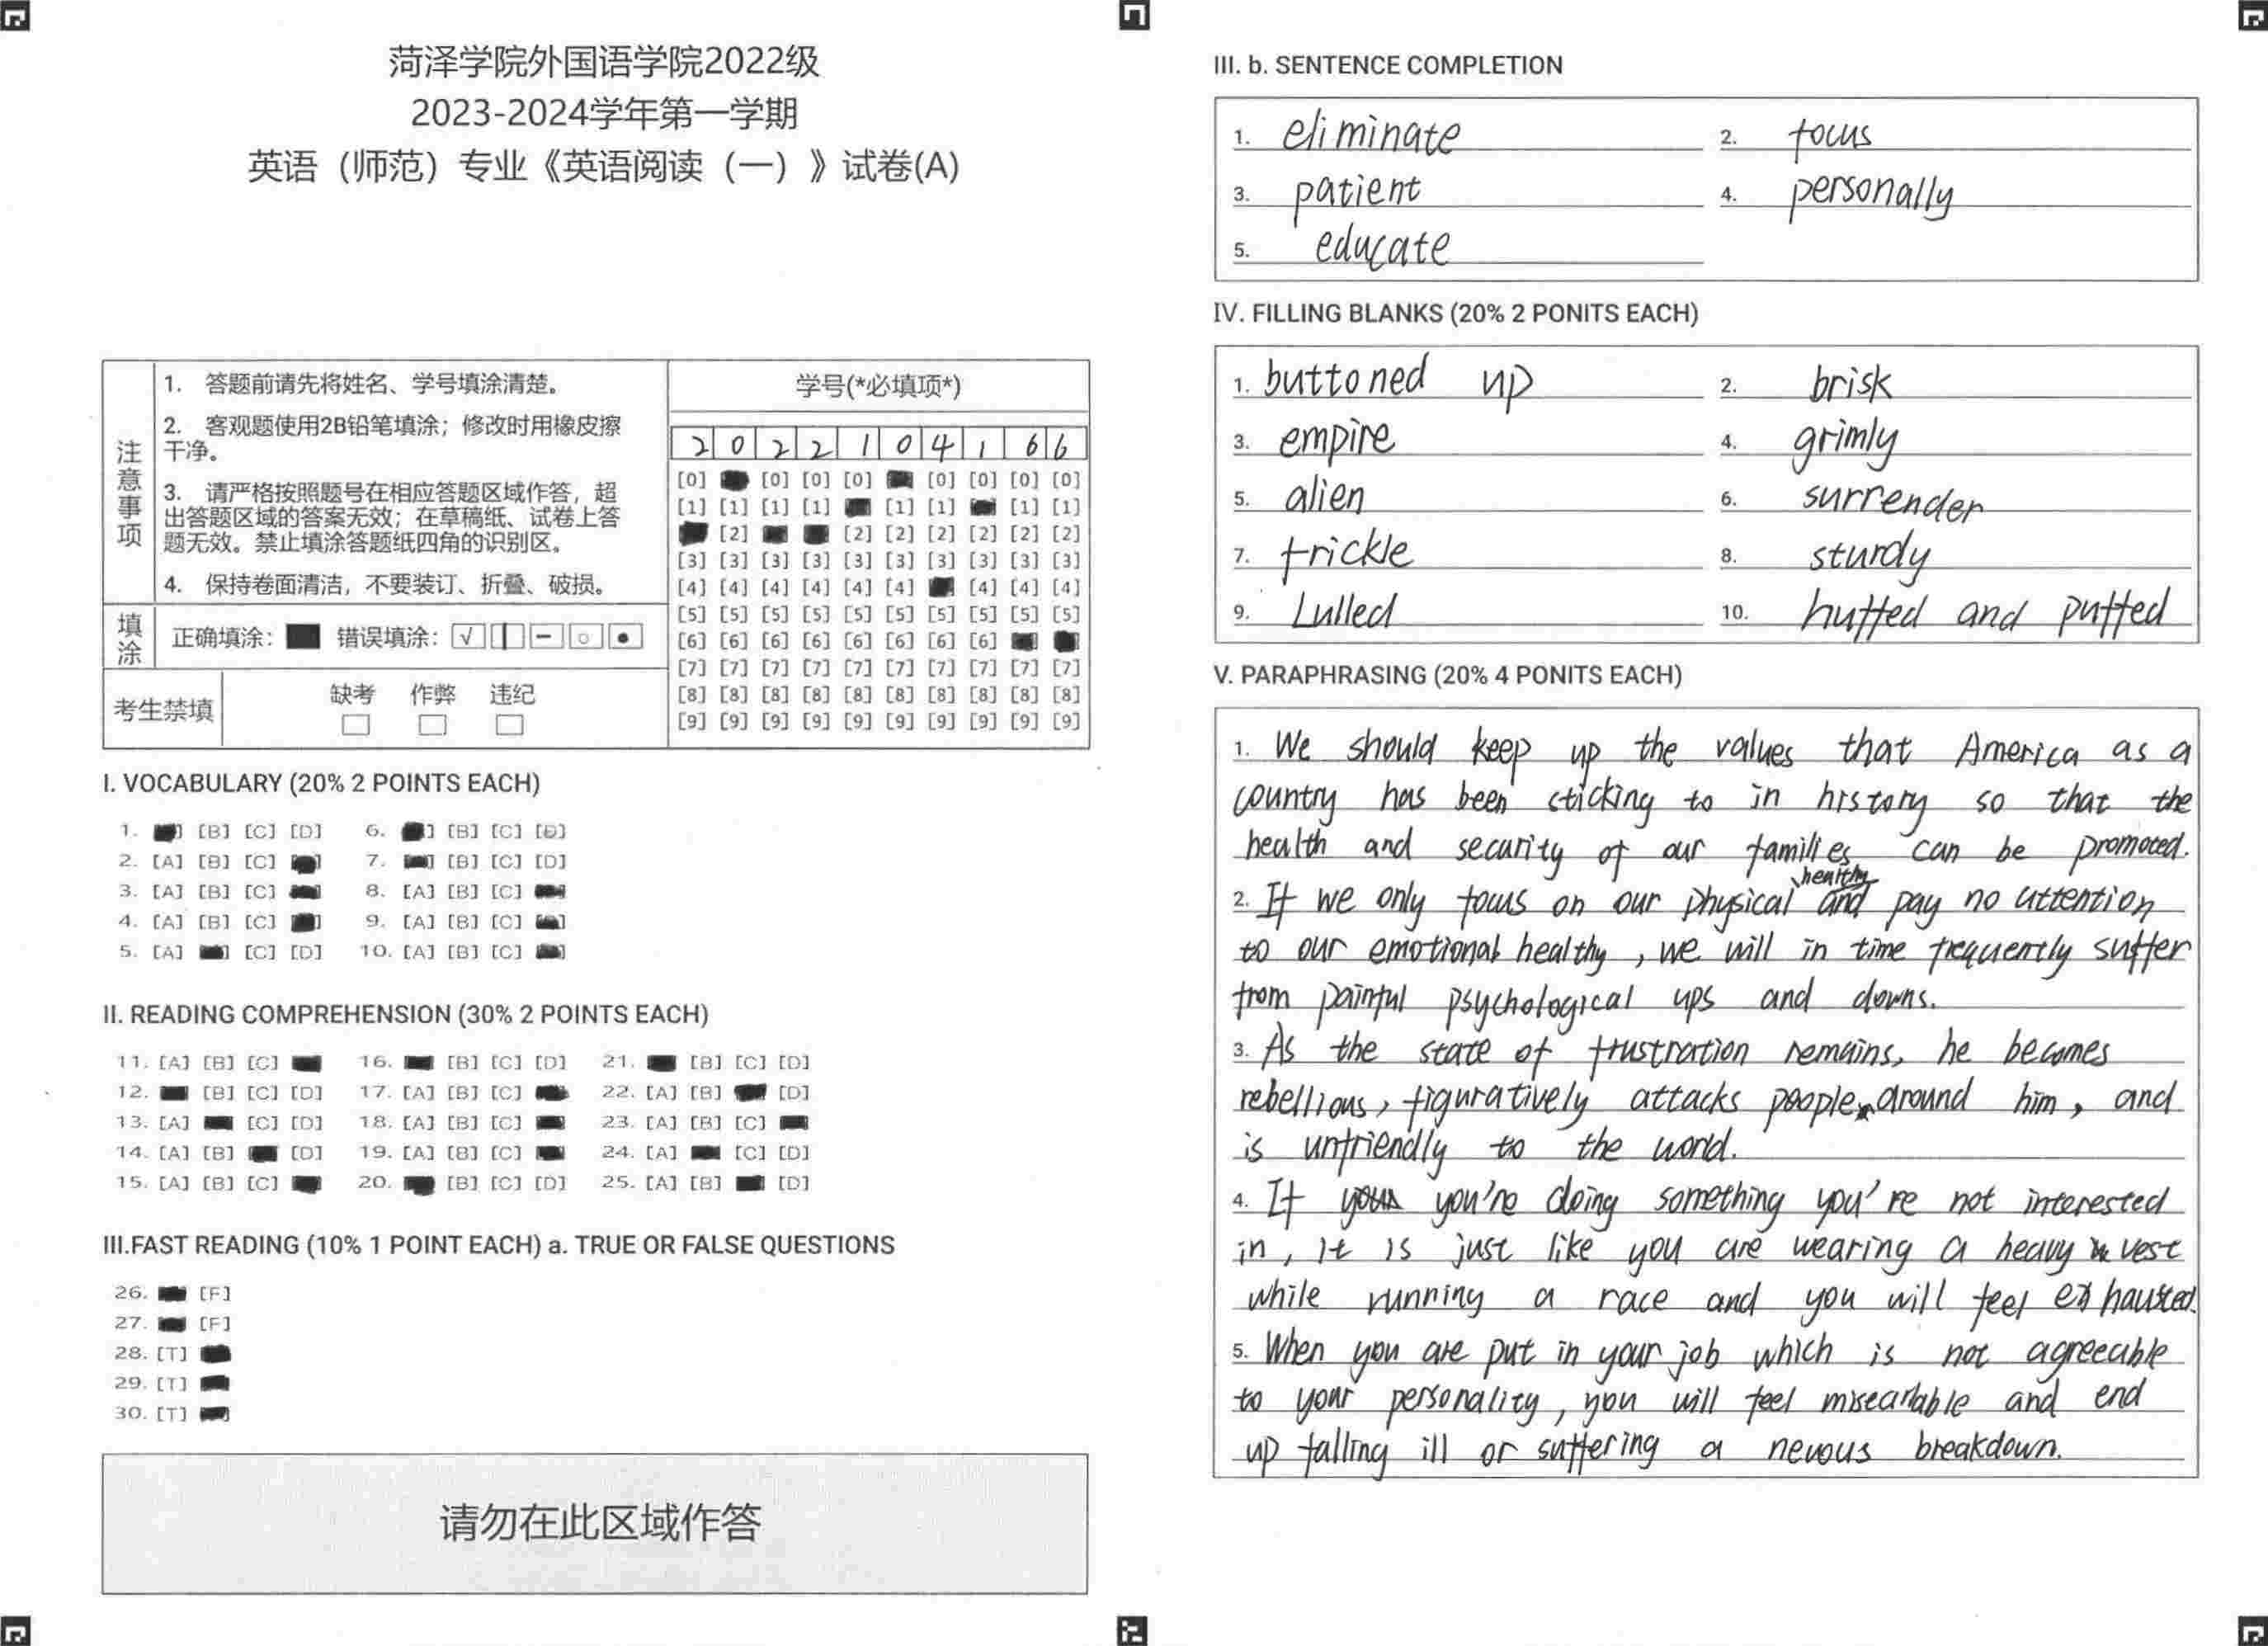 菏泽学院外国语学院2022级
2023-2024学年第一学期
英语（师范）专业《英语阅读（一）》试卷(A)
注意事项
1. 答题前请先将姓名、学号填涂清楚。
2. 客观题使用2B铅笔填涂；修改时用橡皮擦
干净。
3. 请严格按照题号在相应答题区域作答，超
出答题区域的答案无效；在草稿纸、试卷上答
题无效。禁止填涂答题纸四角的识别区。
4. 保持卷面清洁，不要装订、折叠、破损。
填涂
正确填涂： 错误填涂：
考生禁填
缺考 作弊 违纪
学号(*必填项*)
2 0 2 2 1 0 4 1 6 6
[0] [0] [0] [0] [0] [0] [0] [0]
[1] [1] [1] [1] [1] [1] [1] [1]
[2] [2] [2] [2] [2] [2] [2]
[3] [3] [3] [3] [3] [3] [3] [3] [3] [3]
[4] [4] [4] [4] [4] [4] [4] [4] [4]
[5] [5] [5] [5] [5] [5] [5] [5] [5] [5]
[6] [6] [6] [6] [6] [6] [6] [6]
[7] [7] [7] [7] [7] [7] [7] [7] [7] [7]
[8] [8] [8] [8] [8] [8] [8] [8] [8] [8]
[9] [9] [9] [9] [9] [9] [9] [9] [9] [9]
I. VOCABULARY (20% 2 POINTS EACH)
1. [B] [C] [D] 6. [B] [C] [D]
2. [A] [B] [C] 7. [B] [C] [D]
3. [A] [B] [C] 8. [A] [B] [C]
4. [A] [B] [C] 9. [A] [B] [C]
5. [A] [C] [D] 10. [A] [B] [C]
II. READING COMPREHENSION (30% 2 POINTS EACH)
11. [A] [B] [C] 16. [B] [C] [D] 21. [B] [C] [D]
12. [B] [C] [D] 17. [A] [B] [C] 22. [A] [B] [D]
13. [A] [C] [D] 18. [A] [B] [C] 23. [A] [B] [C]
14. [A] [B] [D] 19. [A] [B] [C] 24. [A] [C] [D]
15. [A] [B] [C] 20. [B] [C] [D] 25. [A] [B] [D]
III.FAST READING (10% 1 POINT EACH) a. TRUE OR FALSE QUESTIONS
26. [F]
27. [F]
28. [T]
29. [T]
30. [T]
请勿在此区域作答
III. b. SENTENCE COMPLETION
1. eliminate 2. focus
3. patient 4. personally
5. educate
IV. FILLING BLANKS (20% 2 PONITS EACH)
1. buttoned up 2. brisk
3. empire 4. grimly
5. alien 6. surrender
7. trickle 8. sturdy
9. Lulled 10. huffed and puffed
V. PARAPHRASING (20% 4 PONITS EACH)
1. We should keep up the values that America as a
country has been sticking to in history so that the
health and security of our families can be promoted.
2. If we only focus on our physical healthy and pay no attention
to our emotional healthy, we will in time frequently suffer
from painful psychological ups and downs.
3. As the state of frustration remains, he becomes
rebellious, figuratively attacks people around him, and
is unfriendly to the world.
4. If you're doing something you're not interested
in, it is just like you are wearing a heavy vest
while running a race and you will feel exhausted.
5. When you are put in your job which is not agreeable
to your personality, you will feel misearlable and end
up falling ill or suffering a nevous breakdown.